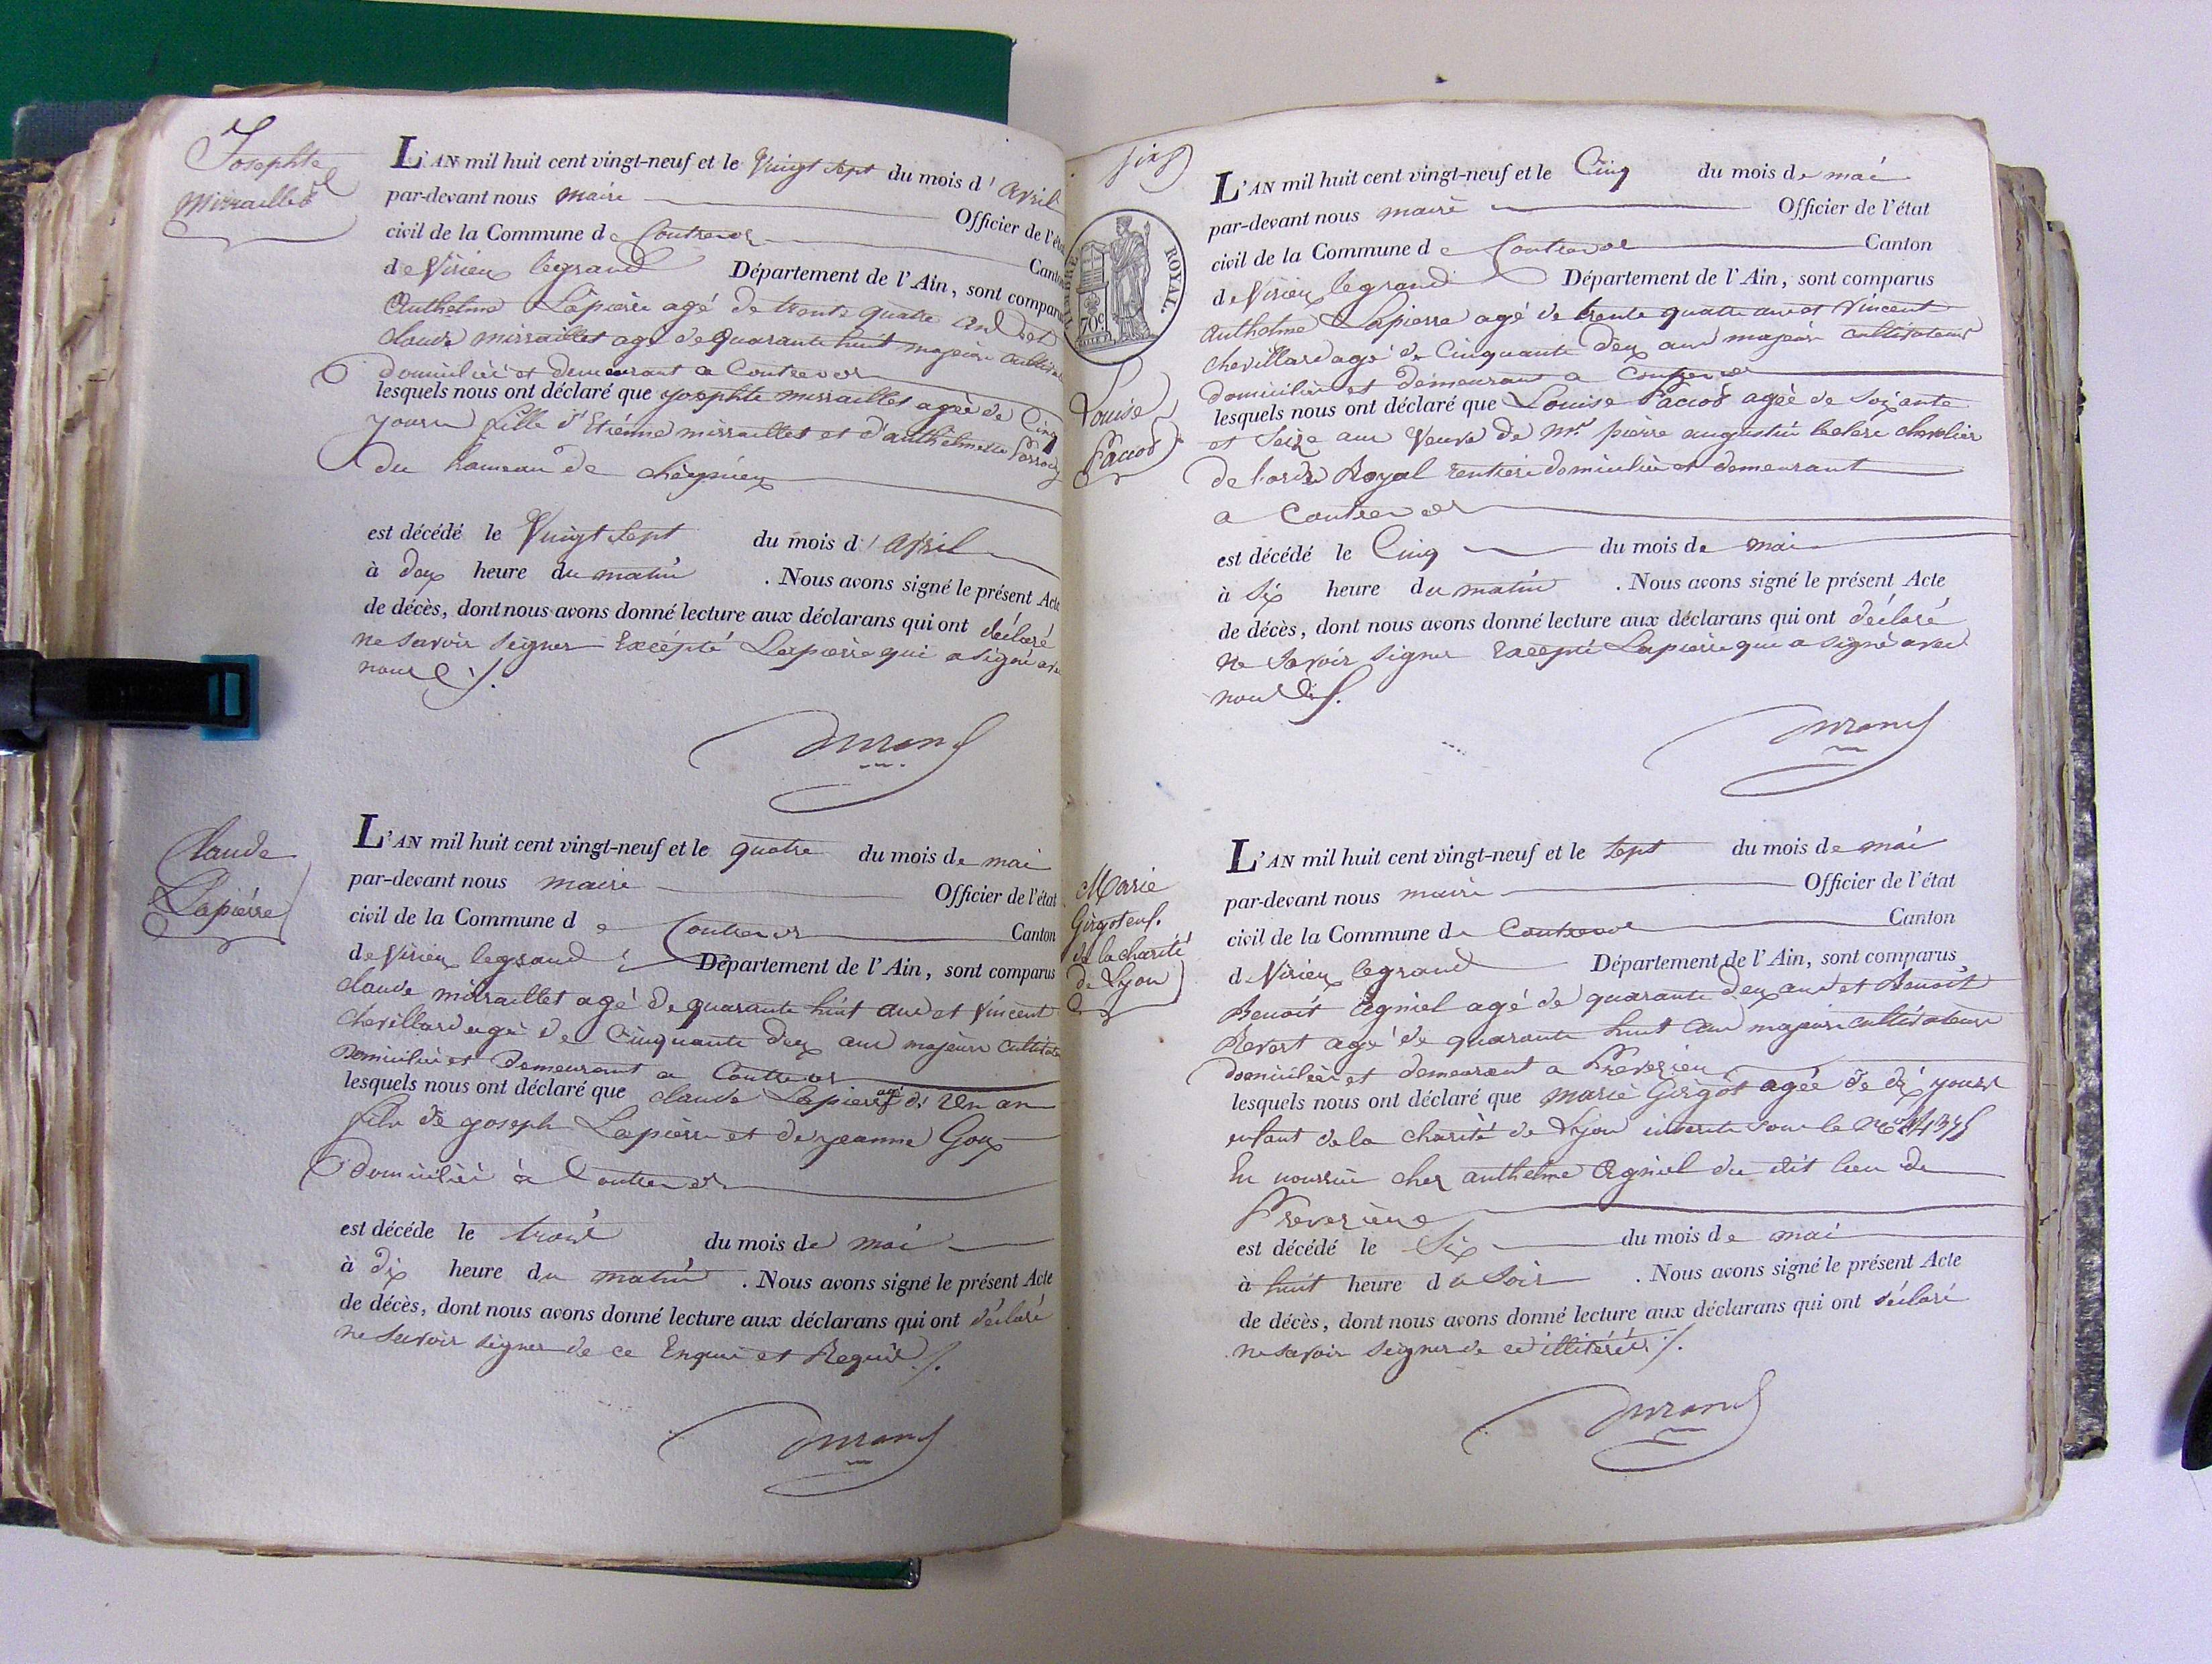 Josephte
Mirraillet
L'AN mil huit cent vingt-neuf et le Vingt sept du mois d' avril
par-devant nous maire Officier de l'état
civil de la Commune de Contrevoz Canton
de Virieu legrand Département de l'Ain, sont comparus
Authelme Lapierre agé de trente quatre ans et
claude mirraillet agé de quarante huit majeurs
domiciliés et demeurant a Contrevoz
lesquels nous ont déclaré que josephte mirraillet ageé de Cinq
jours fille d'Etienne mirraillet et d'authelmette
du hameau de cheypieu
est décédé le Vingt sept du mois d' avril
à deux heure du matin . Nous avons signé le présent Acte
de décès, dont nous avons donné lecture aux déclarans qui ont déclaré
ne savoir signer Excepté Lapierre qui a signé avec
nous
Durand
Claude
Lapierre
L'AN mil huit cent vingt-neuf et le quatre du mois de mai
par-devant nous maire Officier de l'état
civil de la Commune de Contrevoz Canton
de Virieu legrand Département de l'Ain, sont comparus
claude mirraillet agé de quarante huit ans et Vincent
chevillard agé de Cinquante deux ans majeurs
Domiciliés et Demeurant a Contrevoz
lesquels nous ont déclaré que claude Lapierre agé d' Un an
fils de joseph Lapierre et de jeanne Goux
domiciliés à Contrevoz
est décédé le trois du mois de mai
à dix heure du matin . Nous avons signé le présent Acte
de décès, dont nous avons donné lecture aux déclarans qui ont déclaré
ne savoir signer de ce Enquis et Requis
Durand
TIMBRE ROYAL
70c
Louise
Paccod
L'AN mil huit cent vingt-neuf et le Cinq du mois de mai
par-devant nous maire Officier de l'état
civil de la Commune de Contrevoz Canton
de Virieu legrand Département de l'Ain, sont comparus
Authelme Lapierre agé de trente quatre ans et Vincent
chevillard agé de Cinquante deux ans majeurs cultivateurs
domiciliés et demeurant a Contrevoz
lesquels nous ont déclaré que Louise Paccod ageé de Soixante
et Seize ans Veuve de Mr pierre augustin chevalier
de l'ordre Royal rentiere domiciliée et demeurant
a Contrevoz
est décédé le Cinq du mois de mai
à Six heure du matin . Nous avons signé le présent Acte
de décès, dont nous avons donné lecture aux déclarans qui ont déclaré
ne Savoir signer Excepté Lapierre qui a signé avec
nous
Durand
Marie
Girgot enf.
de la charité
de Lyon
L'AN mil huit cent vingt-neuf et le Sept du mois de mai
par-devant nous maire Officier de l'état
civil de la Commune de Contrevoz Canton
d Virieu legrand Département de l'Ain, sont comparus
Benoit agniel agé de quarante deux ans et Benoît
Revert agé de quarante huit ans majeurs cultivateurs
domiciliés et demeurant a Preverieu
lesquels nous ont déclaré que marie Girgot ageé de dix jours
enfant de la charité de Lyon inscrite sous le
En nourrice chez authelme agniel du dit lieu de
Preverieu
est décédé le Six du mois de mai
à huit heure du Soir . Nous avons signé le présent Acte
de décès, dont nous avons donné lecture aux déclarans qui ont déclaré
ne savoir signer de ce
Durand